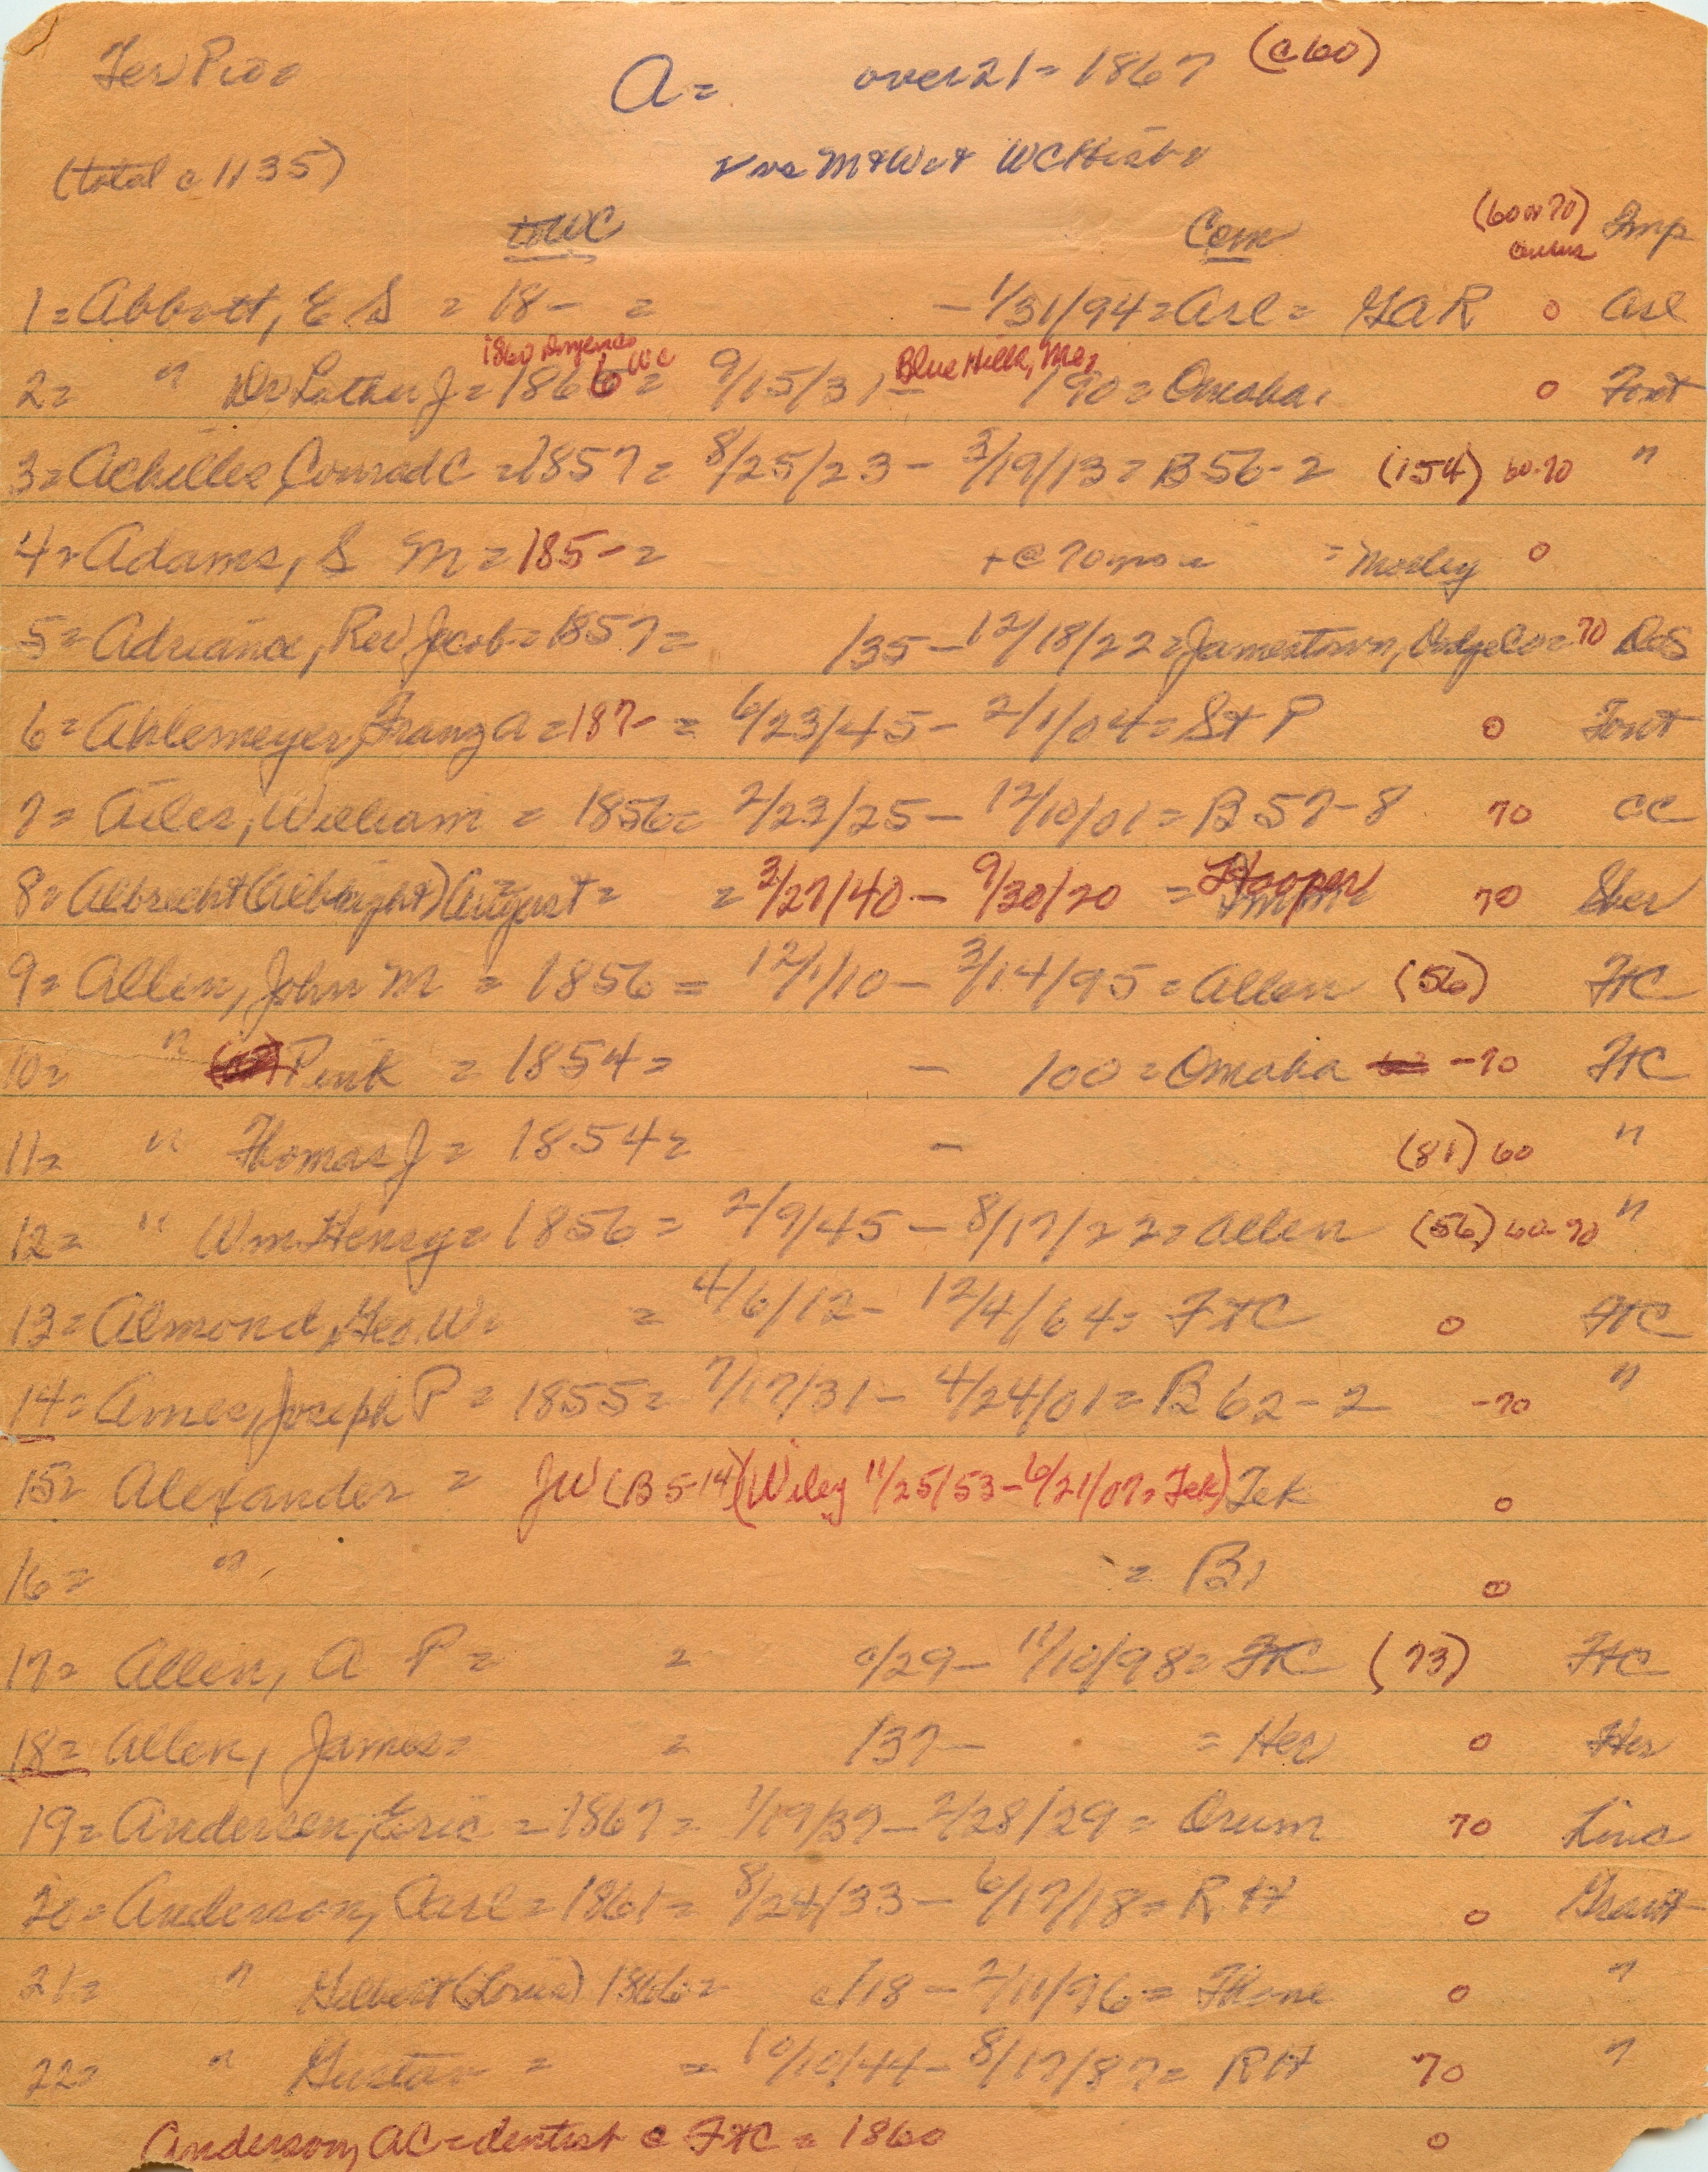 Ter Pio = A = over 21 = 1867 (c 60)
(total c 1135) WC Hist
inWC Com (60 or 70) census Imp
1 = Abbott, E S = 18- = - 1/31/94 = Arl = GAR 0 Arl
1860 WC Blue Hills, Me,
2 = " Dr Luther J = 1866 = 9/15/31 - /90 = Omaha, 0 Font
3 = Achilles, Conrad C = 1857 = 8/25/23 - 3/19/13 = B 56-2 (154) 60-70 "
4 = Adams, S M = 185- = + @ 70 yrs = = Mosley 0
5 = Adriance, Rev Jacob = 1857 = /35 - 12/18/22 = Jamestown, Dodge Co = 70 DeS
6 = Ahlemeyer, Franz A = 187- = 6/23/45 - 2/1/04 = St P 0 Font
7 = Ailes, William = 1856 = 2/23/25 - 12/10/01 = B 57-8 70 CC
8 = Albrecht (Albright) August = = 3/27/40 - 9/30/20 = Hooper 70 Sher
9 = Allen, John M = 1856 = 12/1/10 - 3/14/95 = Allen (56) FtC
10 = " Pink = 1854 = - 100 = Omaha -70 FtC
11 = " Thomas J = 1854 = - (81) 60 "
12 = " Wm Henry = 1856 = 2/9/45 - 8/17/22 = Allen (56) 60-70 "
13 = Almond, Geo. W = = 4/6/12 - 12/4/64 = FtC 0 FtC
14 = Ames, Joseph P = 1855 = 7/17/31 - 4/24/01 = B 62-2 -70 "
15 = Alexander = JW (B 5-14) (Wiley 11/25/53 - 6/21/07 = Tek) Tek 0
16 = " = B, 0
17 = Allen, A P = = c/29 - 11/10/98 = FtC (73) FtC
18 = Allen, James = = /37 - = Her 0 Her
19 = Andersen, Eric = 1867 = 1/19/37 - 2/28/29 = Orum 70 Linc
20 = Anderson, Carl = 1861 = 8/24/33 - 6/17/18 = R H 0 Grant
21 = " Gilbert (Louis) 1866 = c/18 - 2/11/96 = Thone 0 "
22 = " Gustav = = 10/10/44 - 8/17/87 = R H 70 "
Anderson, AC = dentist @ FtC = 1860 0